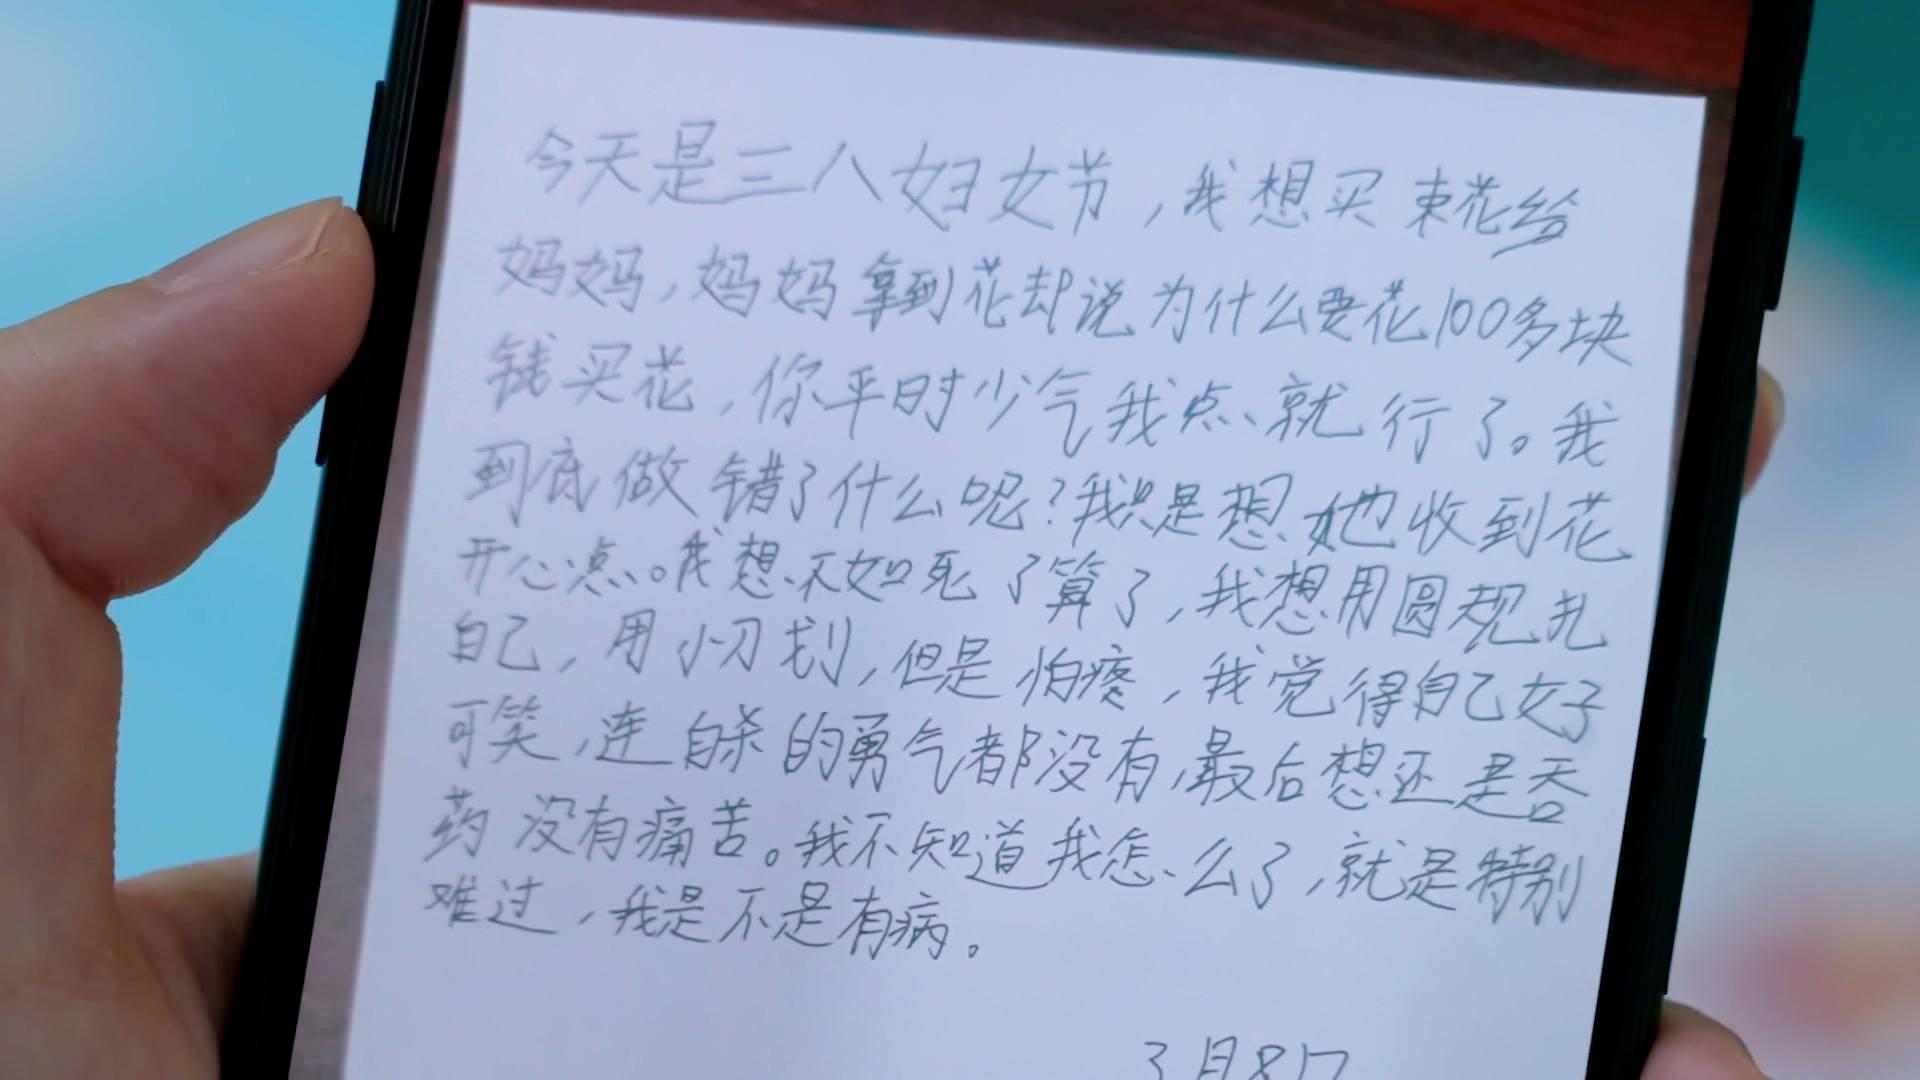 今天是三八妇女节，我想买束花给
妈妈，妈妈拿到花却说为什么要花100多块
钱买花，你平时少气我点就行了。我
到底做错了什么呢？我只是想她收到花
开心点。我想不如死了算了，我想用圆规扎
自己，用小刀划，但是怕疼，我觉得自己好
可笑，连自杀的勇气都没有，最后想还是吞
药没有痛苦。我不知道我怎么了，就是特别
难过，我是不是有病。
3月8日